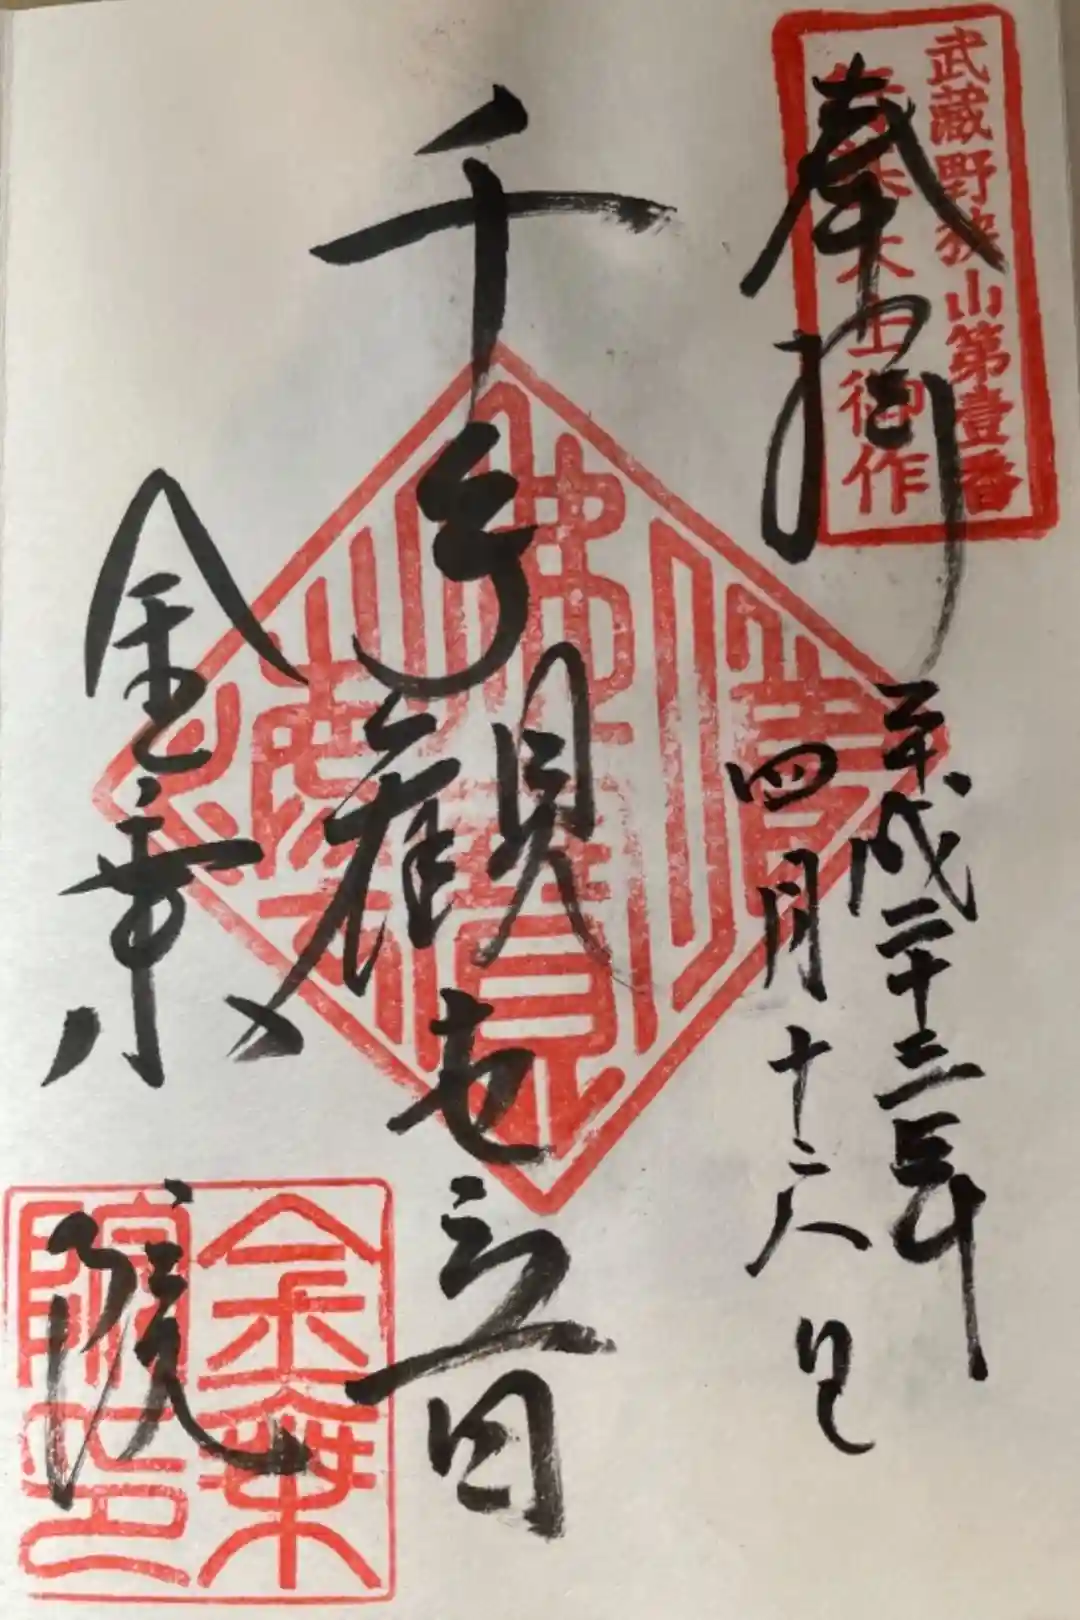 武蔵野狭山第壹番
行基大士御作
奉拝
平成二十三年
四月十六日
千手観世音
金乗院
金乗
院印